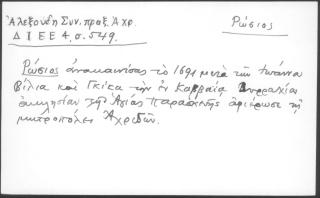 Ἀλεξούδη Συν. πραξ. Ἀχρ.
Δ Ι Ε Ε 4, σ. 549.
Ρώσιος
Ρώσιος ἀνακαινίσας τὸ 1691 μετὰ τῶν
Βίλια καὶ Γκίκα τὴν ἐν Καββαίᾳ Δυρραχίου
ἐκκλησίαν τῆς Ἁγίας Παρασκευῆς ἀφιέρωσε τῇ
μητροπόλει Ἀχριδῶν.